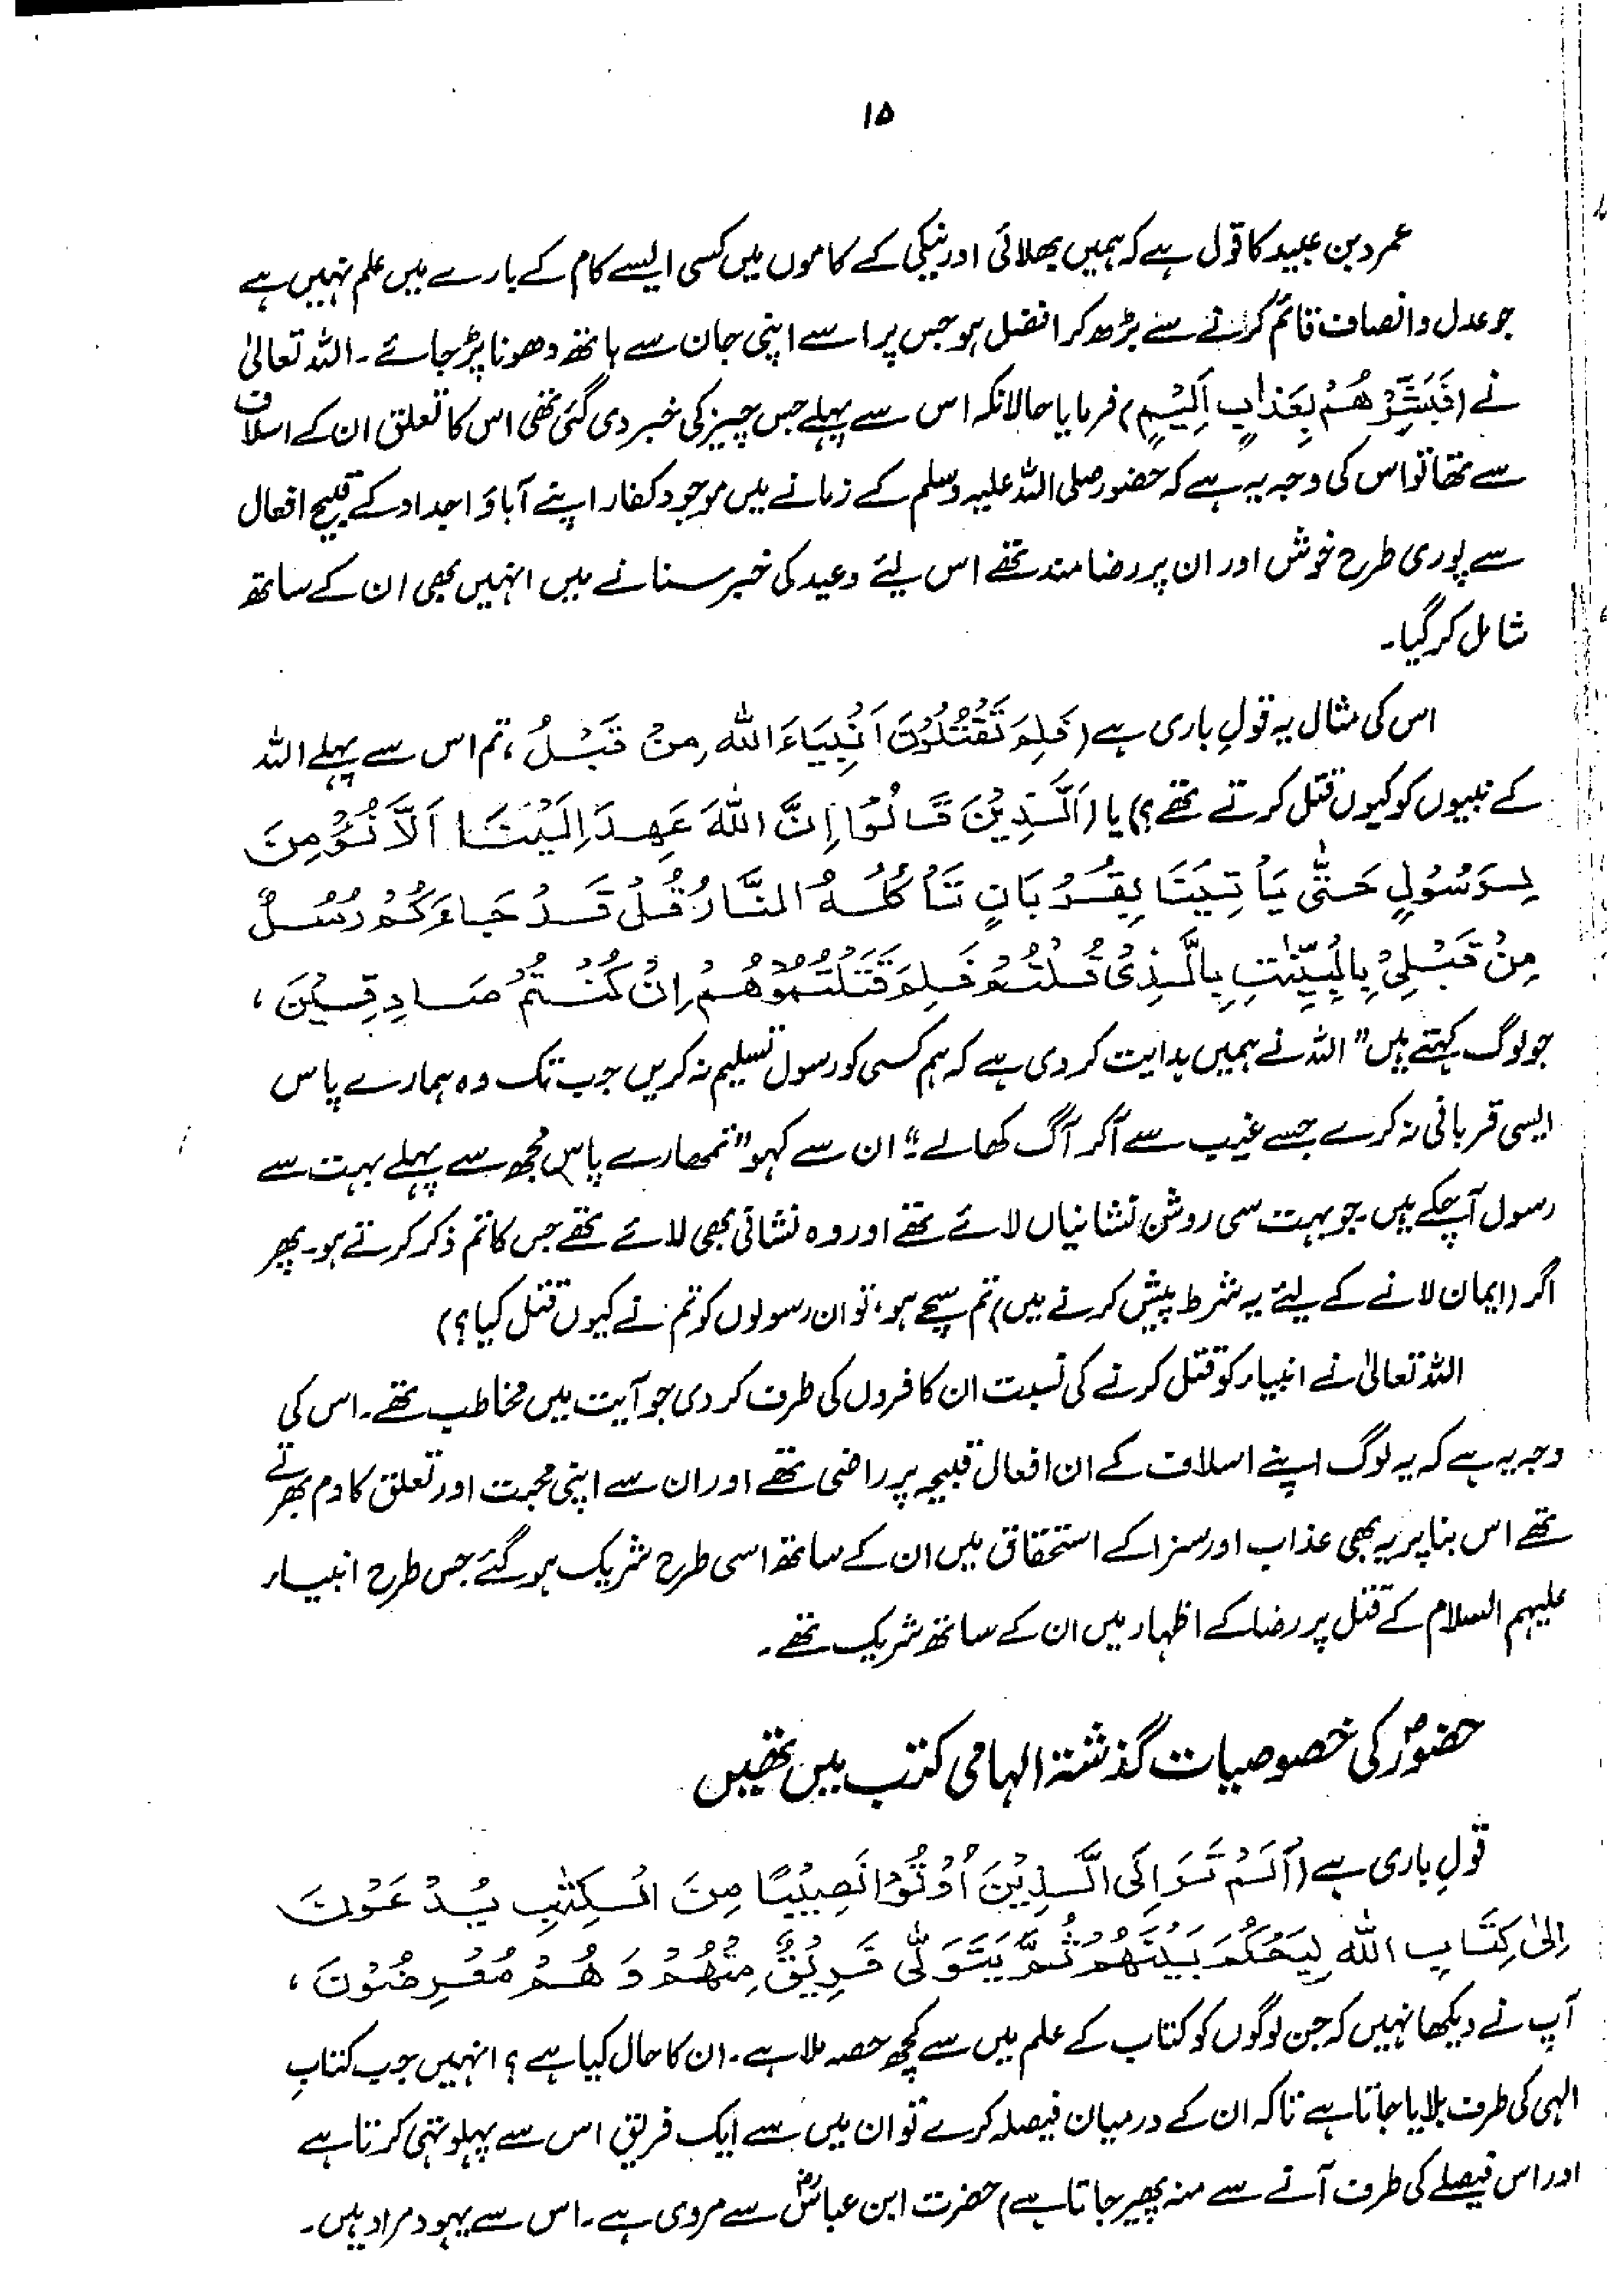 ۱۵
عمرو بن عبید کا قول ہے کہ ہمیں بھلائی اور نیکی کے کاموں میں کسی ایسے کام کے بارے میں علم نہیں ہے
جو عدل و انصاف قائم کرنے سے بڑھ کر افضل ہو جس پر اسے اپنی جان سے ہاتھ دھونا پڑ جائے۔ اللہ تعالیٰ
نے (فَبَشِّرْهُمْ بِعَذَابٍ اَلِيْمٍ) فرمایا حالانکہ اس سے پہلے جس چیز کی خبر دی گئی تھی اس کا تعلق ان کے اسلاف
سے تھا تو اس کی وجہ یہ ہے کہ حضور صلی اللہ علیہ وسلم کے زمانے میں موجود کفار اپنے آباؤ اجداد کے قبیح افعال
سے پوری طرح خوش اور ان پر رضامند تھے اس لئے وعید کی خبر سنانے میں انہیں بھی ان کے ساتھ
شامل کر گیا۔
اس کی مثال یہ قولِ باری ہے (فَلِمَ تَقْتُلُوْنَ اَنْبِيَاءَ اللهِ مِنْ قَبْلُ، تم اس سے پہلے اللہ
کے نبیوں کو کیوں قتل کرتے تھے؟) یا (اَلَّذِيْنَ قَالُوْا اِنَّ اللهَ عَهِدَ اِلَيْنَا اَلَّا نُؤْمِنَ
لِرَسُوْلٍ حَتّٰى يَأْتِيَنَا بِقُرْبَانٍ تَأْكُلُهُ النَّارُ قُلْ قَدْ جَاءَكُمْ رُسُلٌ
مِنْ قَبْلِيْ بِالْبَيِّنٰتِ بِالَّذِيْ قُلْتُمْ فَلِمَ قَتَلْتُمُوْهُمْ اِنْ كُنْتُمْ صَادِقِيْنَ،
جو لوگ کہتے ہیں "اللہ نے ہمیں ہدایت کر دی ہے کہ ہم کسی کو رسول تسلیم نہ کریں جب تک وہ ہمارے پاس
ایسی قربانی نہ کرے جسے غیب سے آکر آگ کھالے" ان سے کہو "تمھارے پاس مجھ سے پہلے بہت سے
رسول آچکے ہیں۔ جو بہت سی روشن نشانیاں لائے تھے اور وہ نشانی بھی لائے تھے جس کا تم ذکر کرتے ہو۔ پھر
اگر (ایمان لانے کے لئے یہ شرط پیش کرنے میں) تم سچے ہو، تو ان رسولوں کو تم نے کیوں قتل کیا؟)
اللہ تعالیٰ نے انبیاء کو قتل کرنے کی نسبت ان کافروں کی طرف کر دی جو آیت میں مخاطب تھے۔ اس کی
وجہ یہ ہے کہ یہ لوگ اپنے اسلاف کے ان افعال قبیحہ پر راضی تھے اور ان سے اپنی محبت اور تعلق کا دم بھرتے
تھے اس بنا پر یہ بھی عذاب اور سزا کے استحقاق میں ان کے ساتھ اسی طرح شریک ہو گئے جس طرح انبیاء
علیہم السلام کے قتل پر رضا کے اظہار میں ان کے ساتھ شریک تھے۔
حضورؐ کی خصوصیات گذشتہ الہامی کتب میں تھیں
قولِ باری ہے (اَلَمْ تَرَ اِلَى الَّذِيْنَ اُوْتُوْا نَصِيْبًا مِنَ الْكِتٰبِ يُدْعَوْنَ
اِلىٰ كِتَابِ اللهِ لِيَحْكُمَ بَيْنَهُمْ ثُمَّ يَتَوَلّٰى فَرِيْقٌ مِنْهُمْ وَهُمْ مُعْرِضُوْنَ،
آپ نے دیکھا نہیں کہ جن لوگوں کو کتاب کے علم میں سے کچھ حصہ ملا ہے۔ ان کا حال کیا ہے؟ انہیں جب کتابِ
الٰہی کی طرف بلایا جاتا ہے تاکہ ان کے درمیان فیصلہ کرے تو ان میں سے ایک فریق اس سے پہلو تہی کرتا ہے
اور اس فیصلے کی طرف آنے سے منہ پھیر جاتا ہے) حضرت ابن عباسؓ سے مروی ہے۔ اس سے یہود مراد ہیں۔